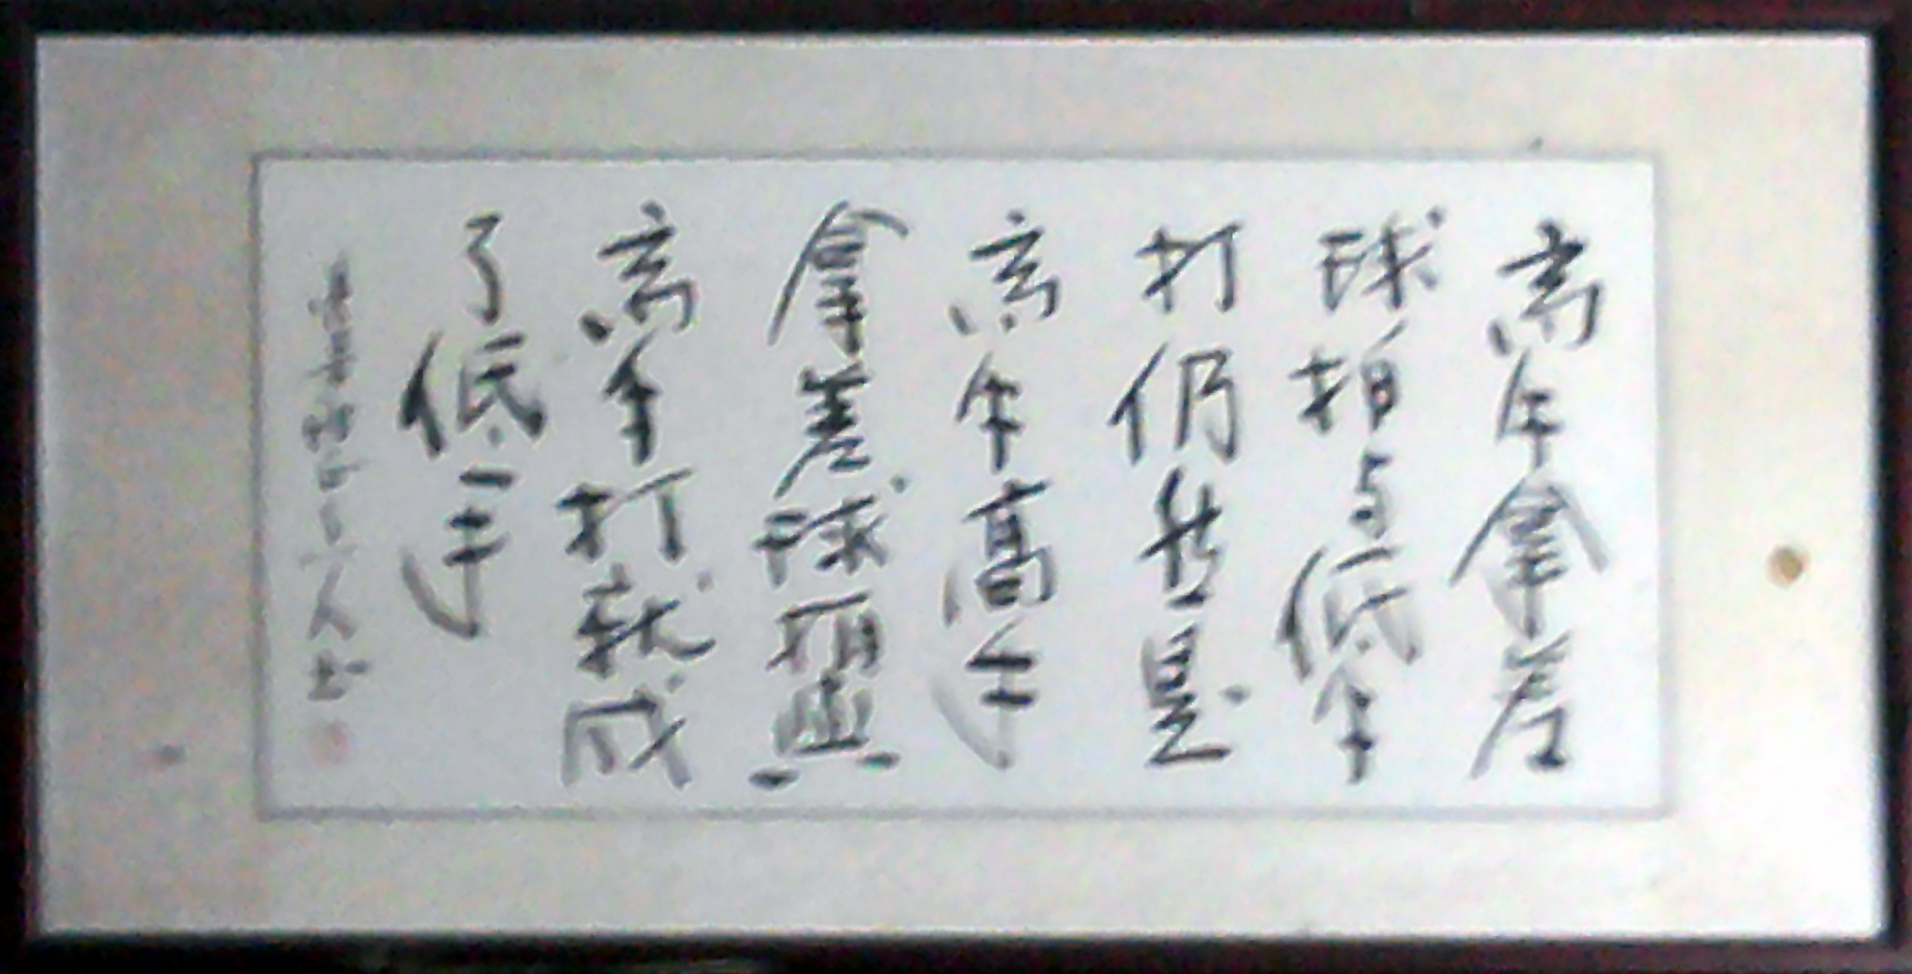 高手拿差
球拍与低手
打仍然是
高手高手
拿差球拍與
高手打就成
了低手